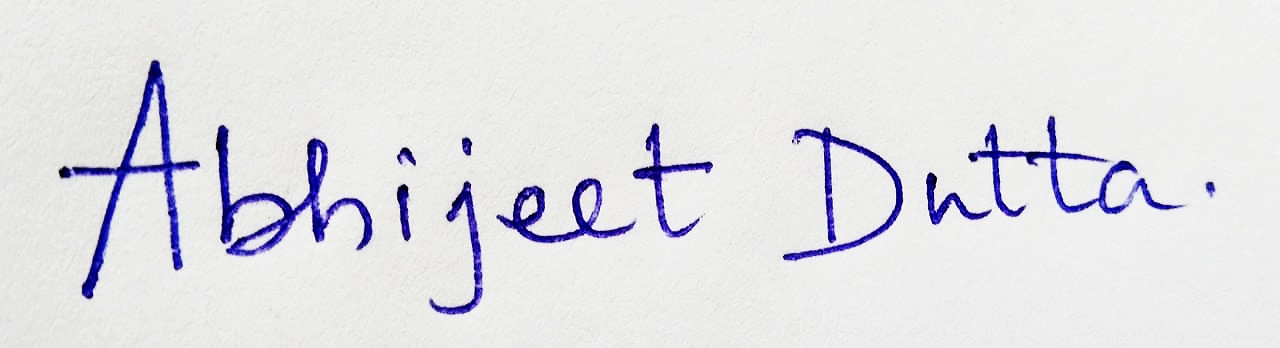 Abhijeet Dutta.